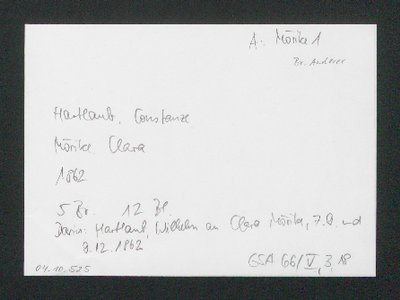 A: Mörike 1
Br. Anderer
Hartlaub, Constanze
Mörike Clara
1862
5 Br. 12 Bl.
Darin: Hartlaub, Wilhelm an Clara Mörike, 7.9. und
9.12.1862
GSA 66/V, 3, 18
04.10.525